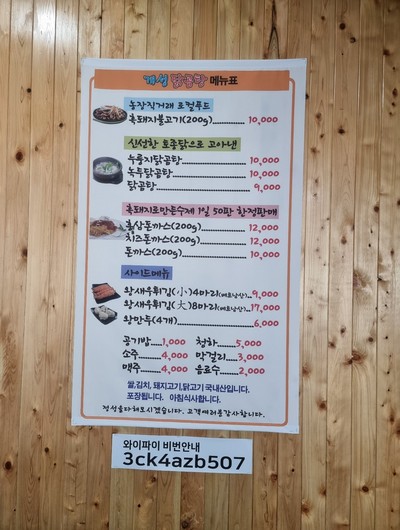 개성 닭곰탕 메뉴표
농장직거래 로컬푸드
흑돼지불고기(200g)............... 10,000
신선한 토종닭으로 고아낸
누룽지닭곰탕.................. 10,000
녹두닭곰탕..................... 10,000
닭곰탕........................... 9,000
흑돼지로만든수제 1일 50판 한정판매
홍삼돈까스(200g)............... 12,000
치즈돈까스(200g)............... 12,000
돈까스(200g)..................... 10,000
사이드메뉴
왕새우튀김(小)4마리(베트남산)...9,000
왕새우튀김(大)8마리(베트남산)...17,000
왕만두(4개)........................6,000
공기밥......1,000 청하...........5,000
소주.........4,000 막걸리......3,000
맥주.........4,000 음료수......2,000
쌀,김치, 돼지고기,닭고기 국내산입니다.
포장됩니다. 아침식사합니다.
정성을다해모시겠습니다. 고객여러분감사합니다.
와이파이 비번안내
3ck4azb507